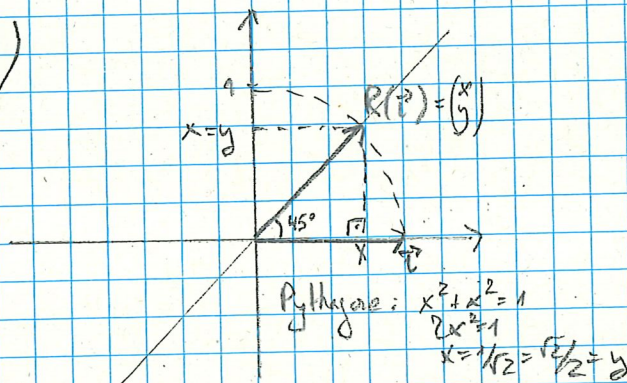 )
1
R(i⃗) = (x y)
x=y
45°
x
i⃗
Pythagore : x²+x²=1
2x²=1
x=1/√2=√2/2=y